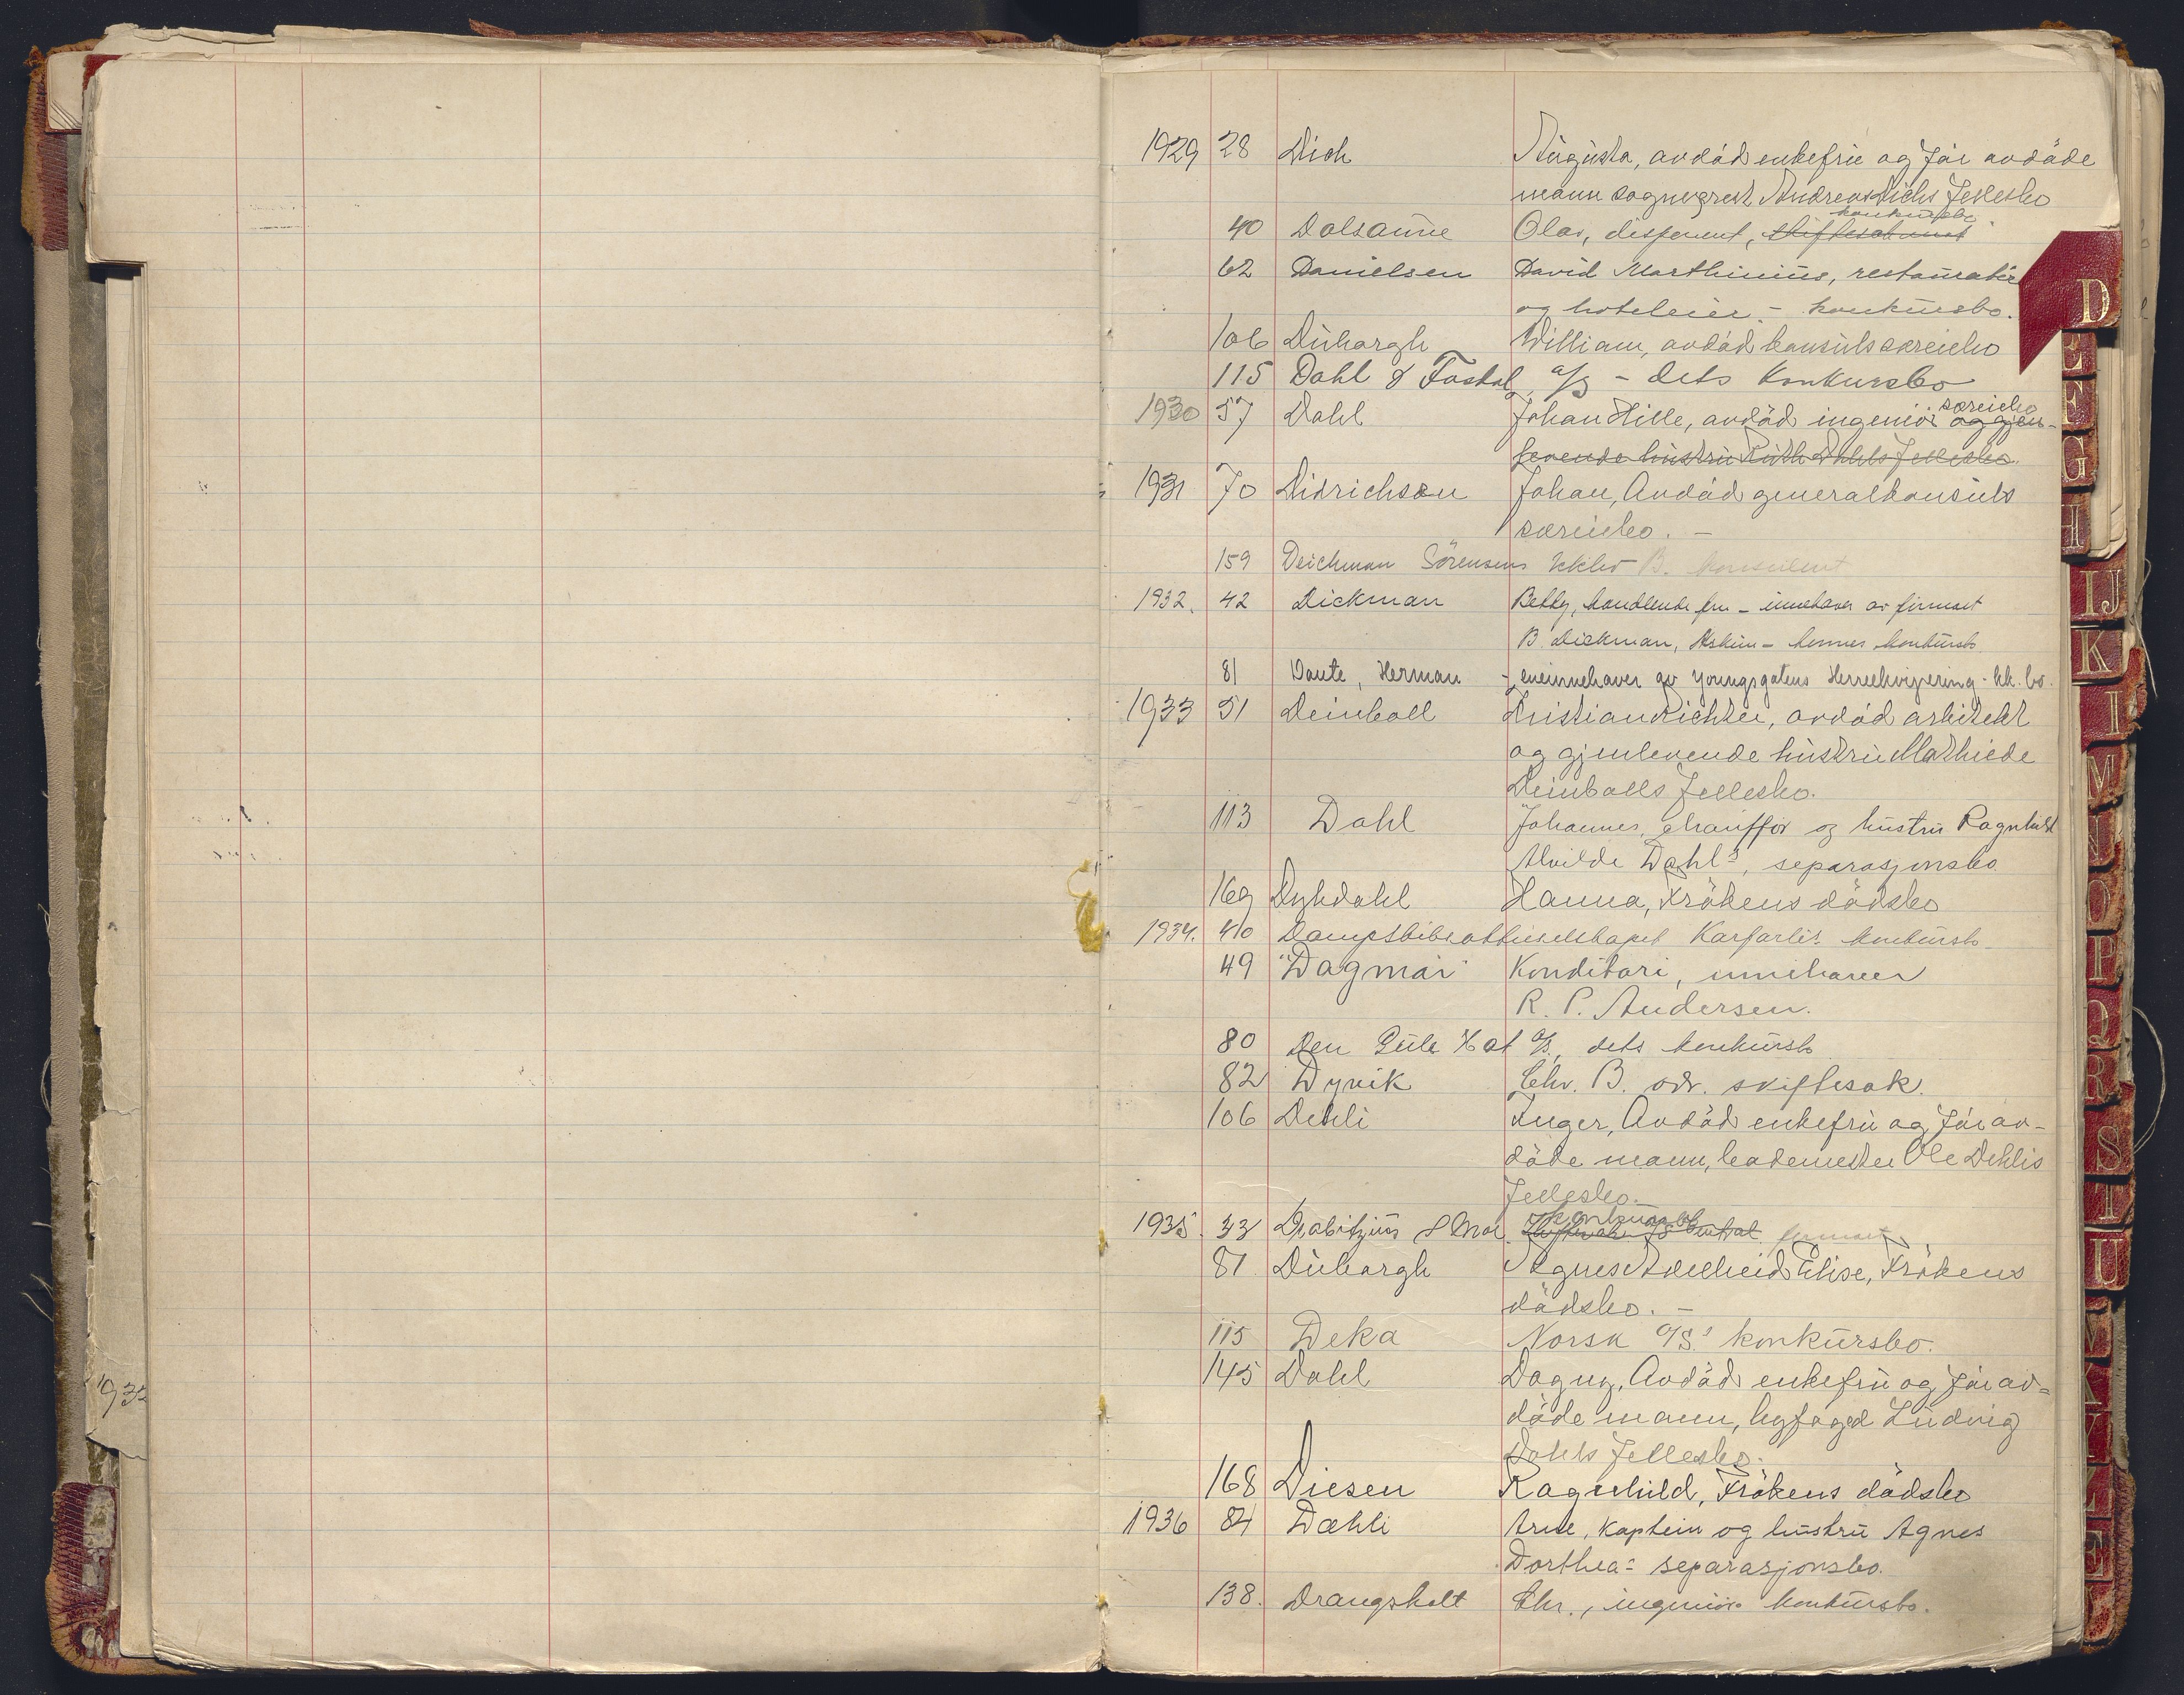 1929 28 Dich Augusta, avdöd enkefru og før avdöde
mann sogneprest Andreas Dichs fellesbo
40 Dalsaune Olav, disponent, skiftesamt konkursbo
62 Danielsen David Marthinius, restauratör
og hoteleier - konkursbo.
106 Duborgh William, avdöd konsuls særeiebo
115 Dahl & Fostad, A/S - dets konkursbo
1930 57 Dahl Johan Hille, avdöd ingeniör særeiebo og gjen-
levende hustru Ruth Dahls fellesbo.
1931 70 Didrichsen Johan, Avdöd generalkonsuls
særeiebo. -
159 Deichman Sörensens kkbo B. konsulent
1932. 42 Dickman Betty, handlende fru - innehaver av firmaet
B. Dickman, Askim - hennes konkursbo
81 Daute, Herman - eneinnehaver av Youngsgatens Herreekvipering - kk. bo.
1933 51 Deinboll Kristian Richter, avdöd arkitekt
og gjenlevende hustru Mathiede
Deinbolls fellesbo.
113 Dahl Johannes, chaufför og hustru Ragnhild
Alvilde Dahl's, separasjonsbo
169 Dybdahl Hanna, Frökens dödsbo
1934. 40 Dampskibsaktieselskapet Karfarlis konkursbo
49 "Dagmar" Konditori, innehaver
R. P. Andersen.
80 Den Gule Hat A/S, dets konkursbo
82 Dyvik Chr. B. adv. skiftesak.
106 Dehli Inger, Avdöd enkefru og før av-
döde mann, lademester Ole Dehlis
fellesbo.
1935 33 Drabitzius & Moe konkursbo firmaet
87 Duborgh Agnes Adelheid Elise, Frökens
dödsbo. -
115 Deka Norsk A/S' konkursbo.
145 Dahl Dagny, Avdöd enkefru og før av-
döde mann, byfoged Ludvig
Dahls fellesbo.
168 Diesen Ragnhild, Frökens dödsbo
1936 84 Dæhli Arne, kaptein og hustru Agnes
Dorthea - separasjonsbo.
138. Drangsholt Chr., ingeniör konkursbo.
D
E
F
G
H
IJ
K
L
M
N
O
P
Q
R
S
T
U
V